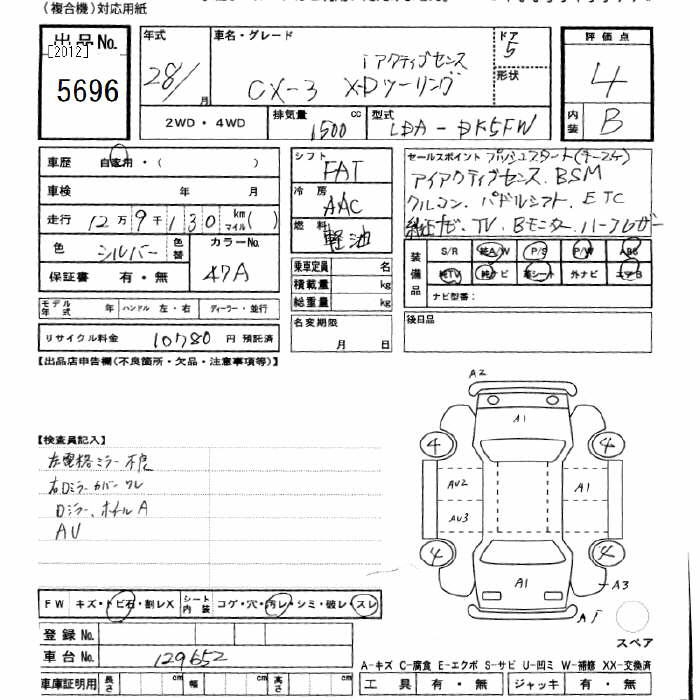 （複合機）対応用紙
出品No.
[2012]
5696
年式
28/
月
車名・グレード
iアクティブセンス
CX-3 XDツーリング
ドア
5
形状
評価点
4
内装
B
2WD・4WD
排気量
1500 cc
型式
LDA-DK5FW
車歴 自家用・（ ）
車検 年 月
走行 12万9千130 km マイル（ ）
色 シルバー
色替
カラーNo.
47A
保証書 有・無
シフト
FAT
冷房
AAC
燃料
軽油
乗車定員 名
積載量 kg
総重量 kg
名変期限
月 日
セールスポイント プッシュスタート(キー2ケ)
アイアクティブセンス、BSM
クルコン、パドルシフト、ETC
純正ナビ、TV、Bモニター、ハーフレザー
装備品
S/R 純A/W P/S P/W ABS
純TV 純ナビ 革シート 外ナビ エアB
ナビ型番：
後日品
モデル年式 年 ハンドル 左・右 ディーラー・並行
リサイクル料金 10780 円 預託済
【出品店申告欄(不良箇所・欠品・注意事項等)】
【検査員記入】
左電格ミラー不良
右Dミラーカバーワレ
Dミラー、ホイールA
AU
A2
A1
4
4
AU2
A1
AU3
4
4
A1
A3
A1
スペア
FW キズ・トビ石・割レX
シート内装 コゲ・穴・汚レ・シミ・破レ・スレ
登録No.
車台No. 129652
車庫証明用 長さ cm 幅 cm 高さ cm
A-キズ C-腐食 E-エクボ S-サビ U-凹ミ W-補修 XX-交換済
工具 有・無 ジャッキ 有・無